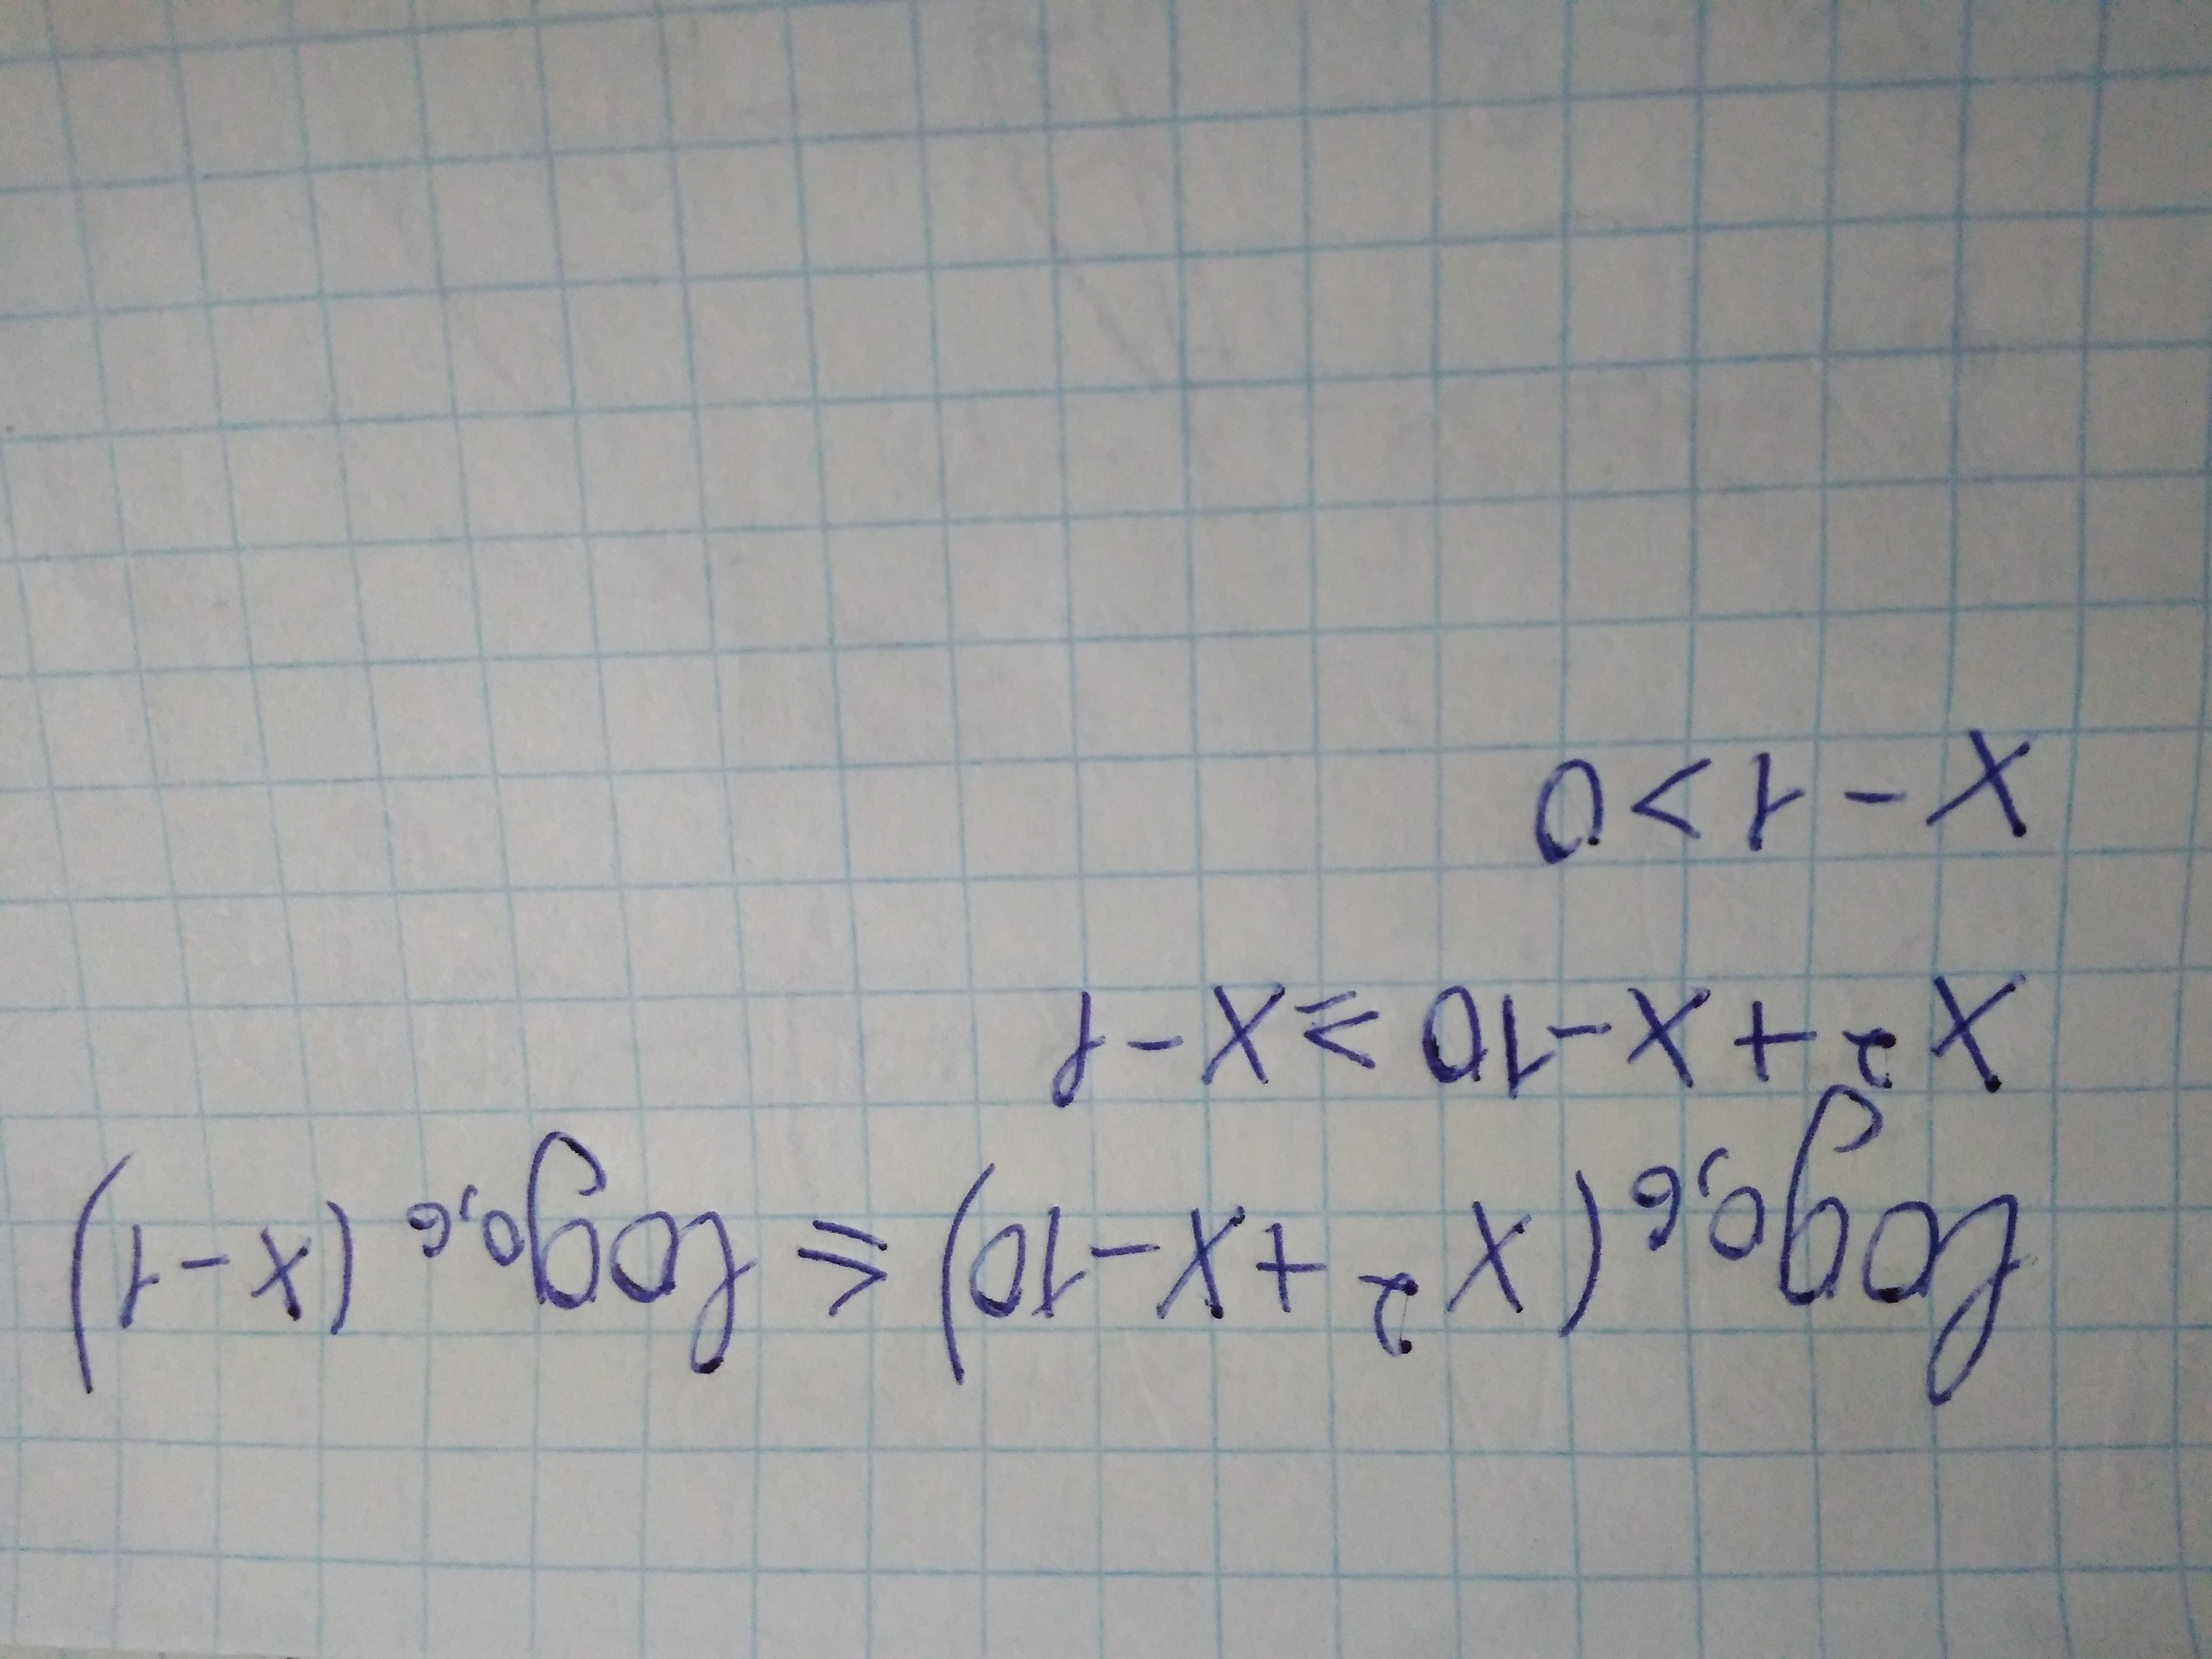 log₀,₆(x²+x-10) ⩽ log₀,₆(x-1)
x²+x-10 ⩾ x-1
x-1>0